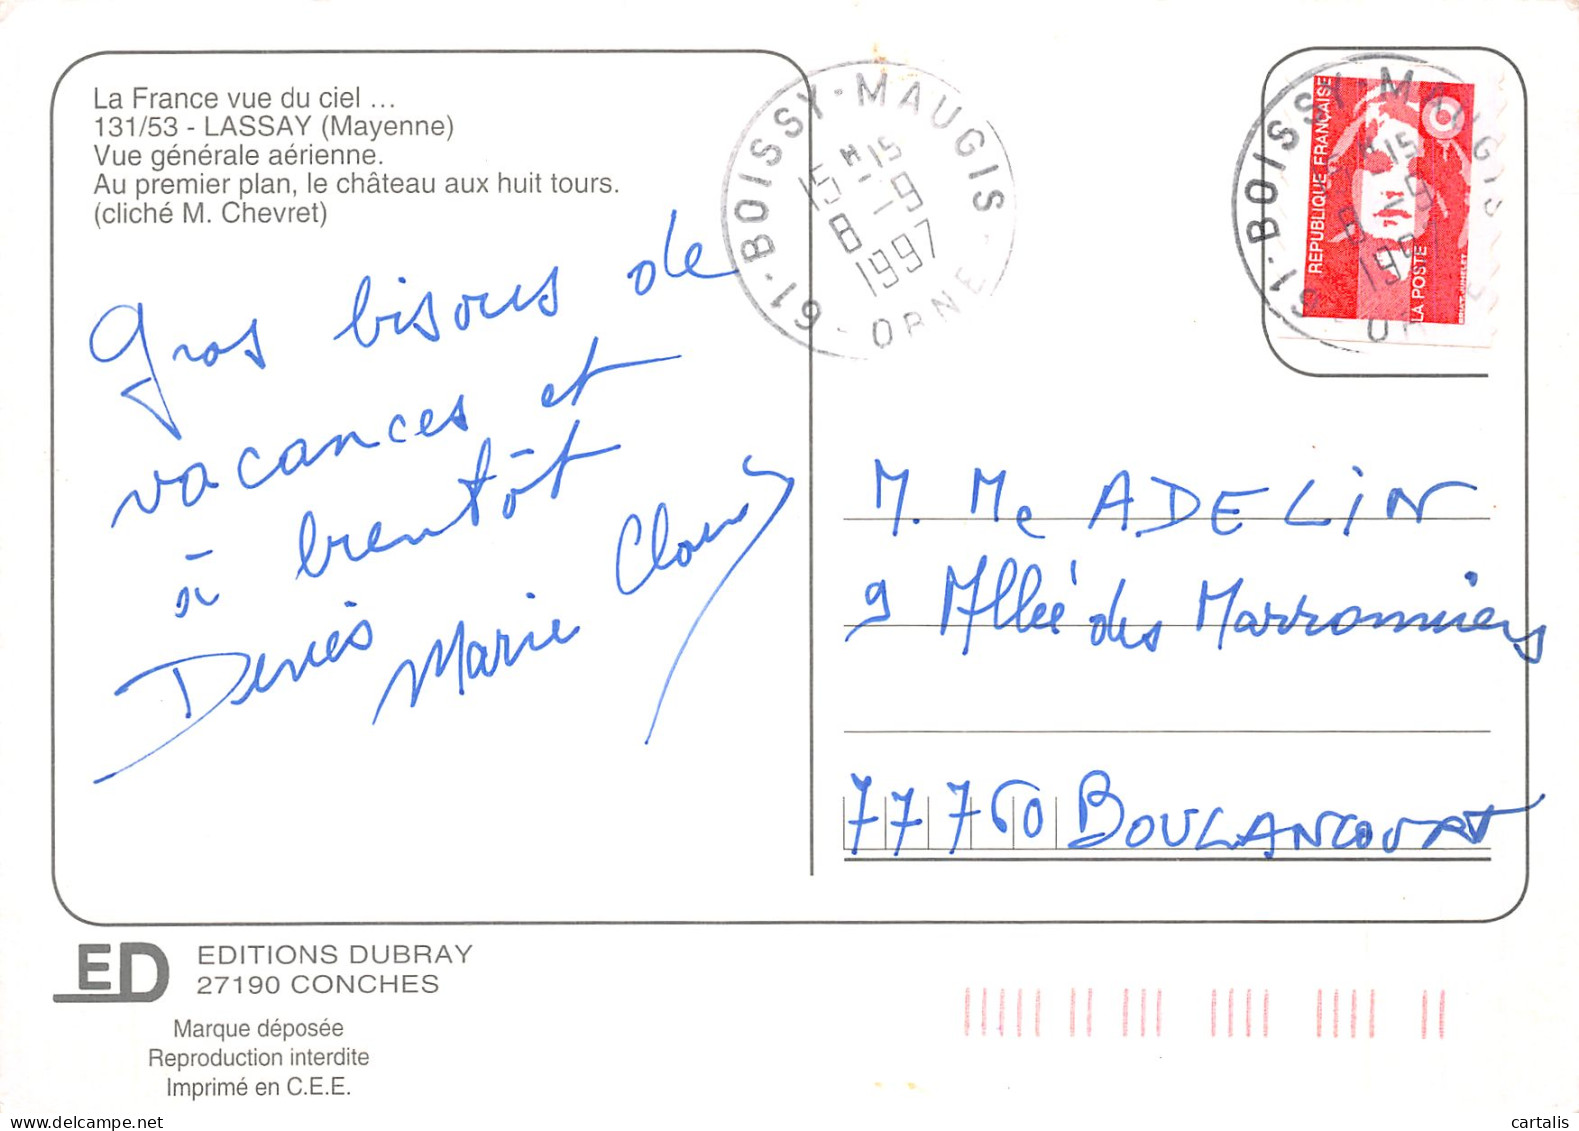 La France vue du ciel ...
131/53 - LASSAY (Mayenne)
Vue générale aérienne.
Au premier plan, le château aux huit tours.
(cliché M. Chevret)
Gros bisous de
vacances et
à bientôt
Denis
Marie Claude
61 - BOISSY-MAUGIS - ORNE
15 H 15
8 - 9
1997
REPUBLIQUE FRANÇAISE
LA POSTE
61 - BOISSY-MAUGIS
15
8 - 9
M. Me ADELIN
9 Allée des Marronniers
77760 BOULANCOURT
ED
EDITIONS DUBRAY
27190 CONCHES
Marque déposée
Reproduction interdite
Imprimé en C.E.E.
cartalis
delcampe.net